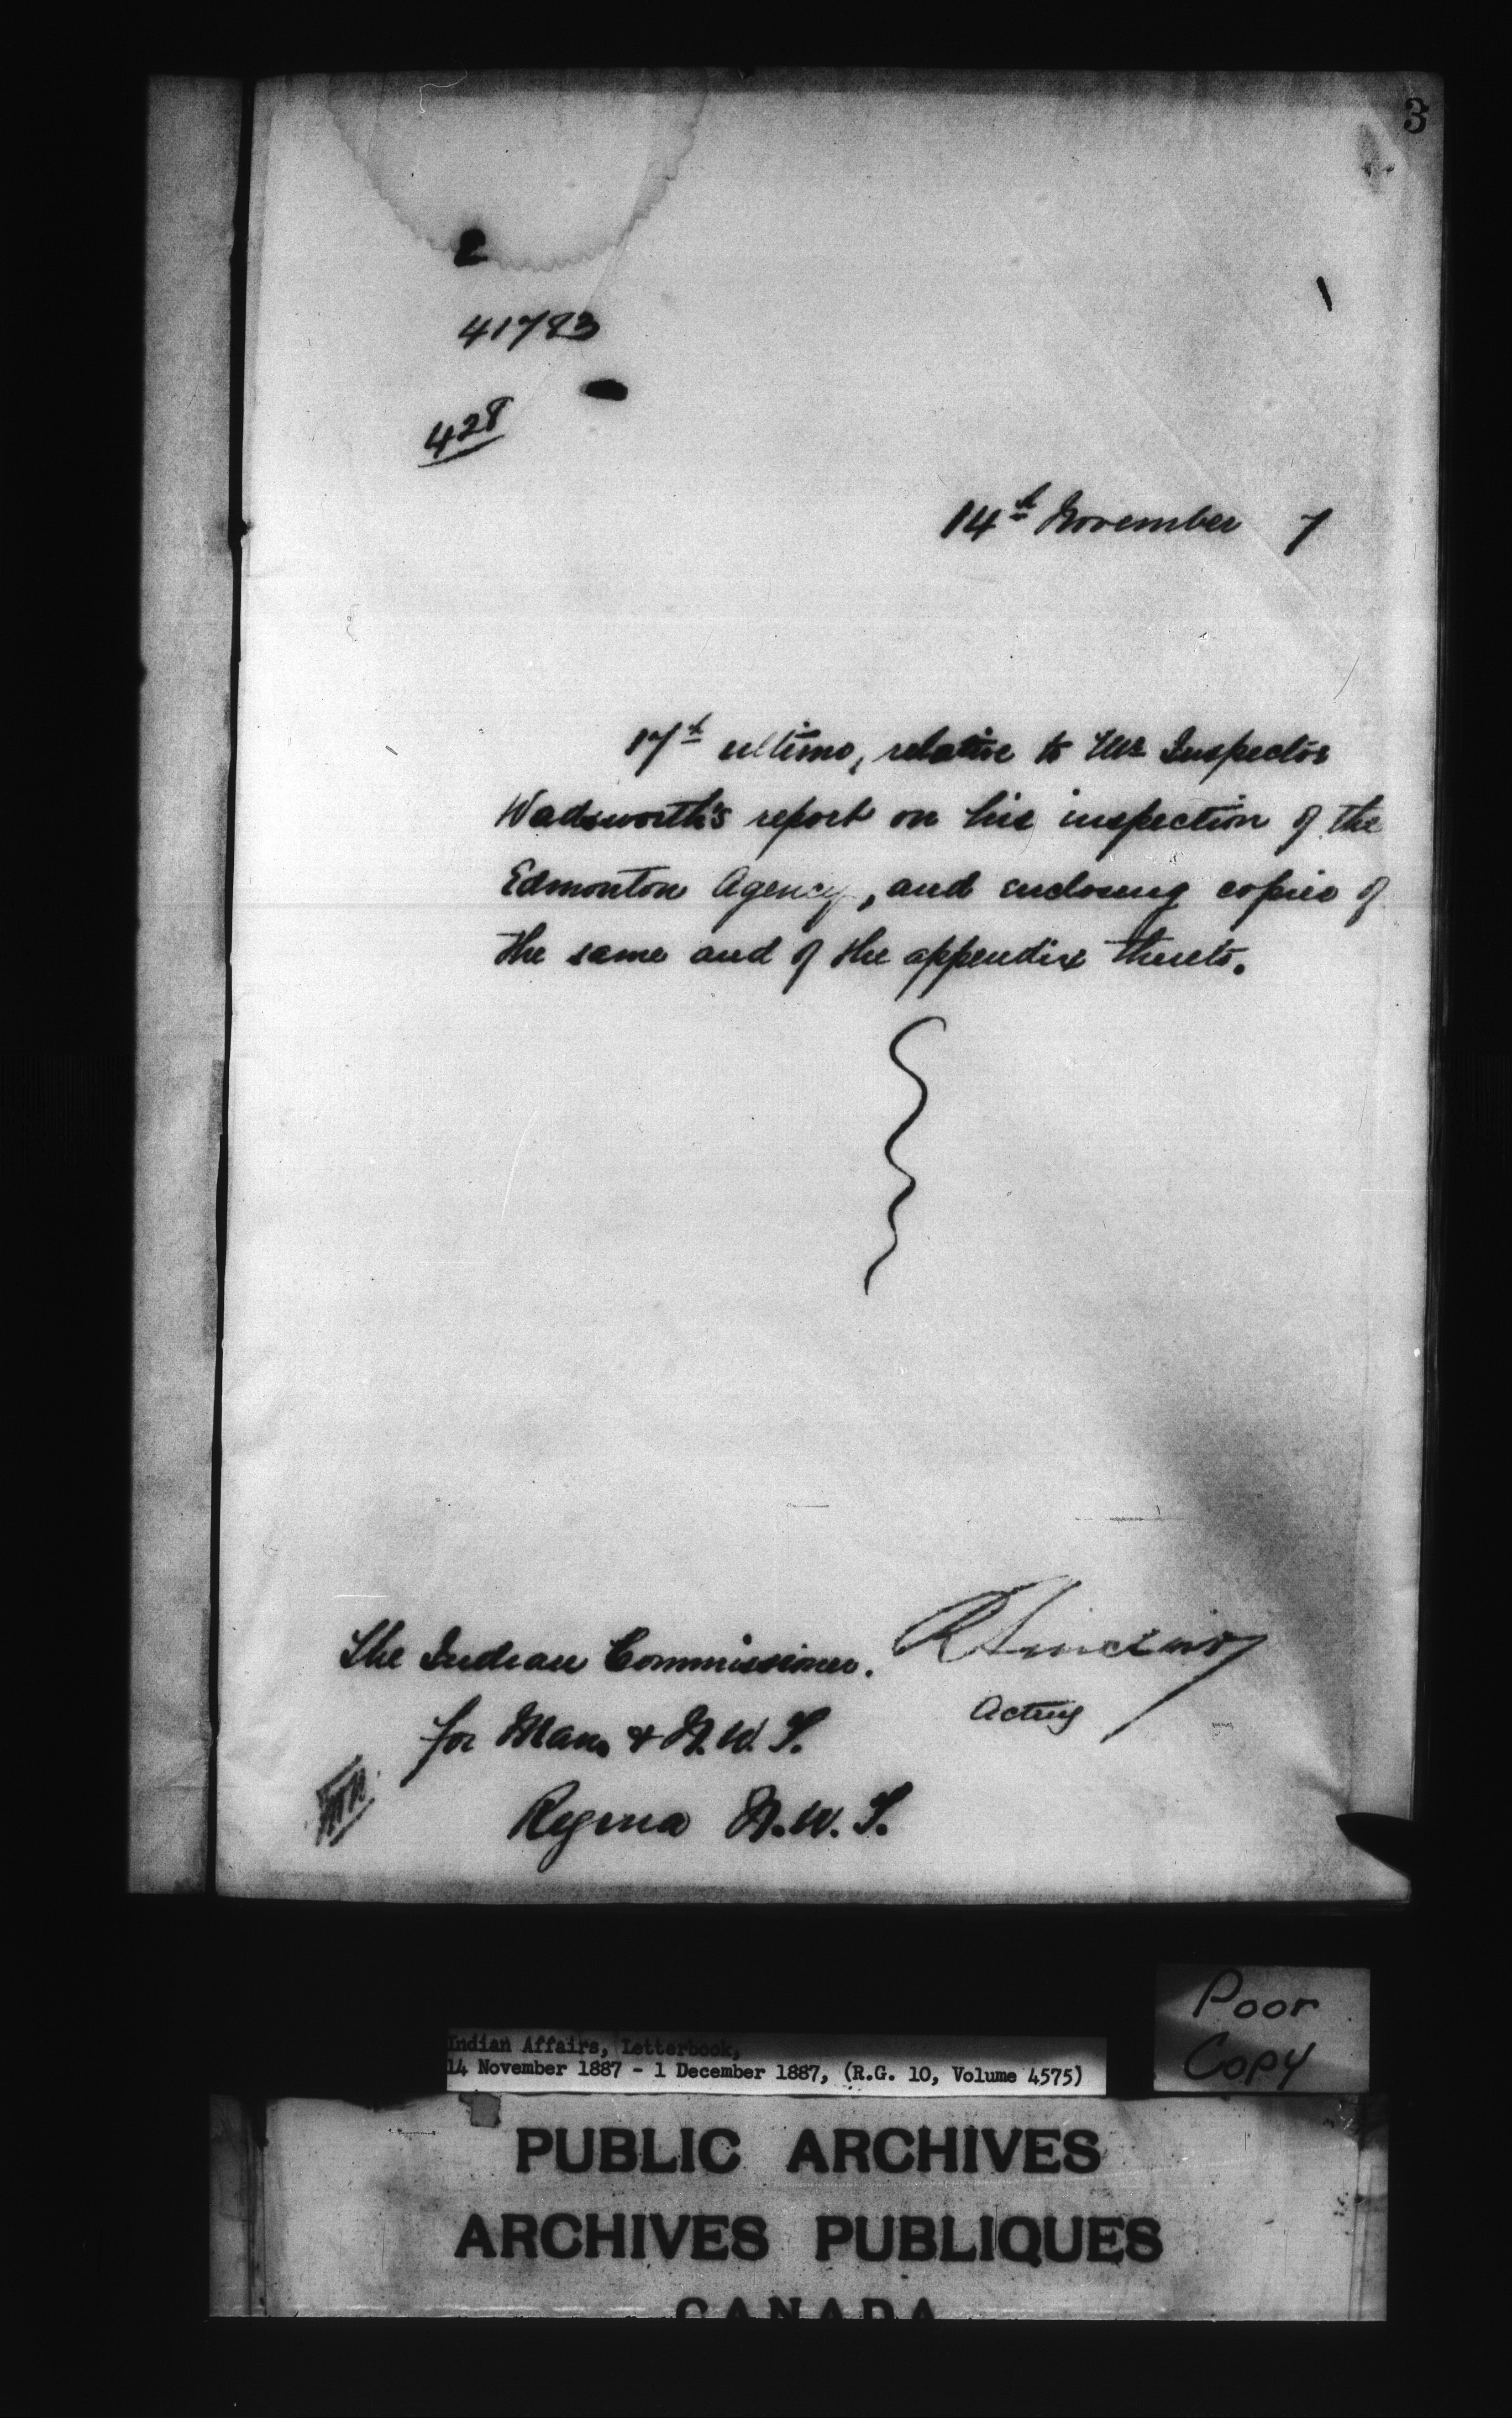 3
2
41783
428
14th November 7
17th ultimo, relative to Mr. Inspector
Wadsworth's report on his inspection of the
Edmonton Agency, and enclosing copies of
the same and of the appendix thereto.
R Sinclair
The Indian Commissioner.
Acting
for Man. & N. W. T.
Regina N. W. T.
Poor
Copy
Indian Affairs, Letterbook,
14 November 1887 - 1 December 1887, (R.G. 10, Volume 4575)
PUBLIC ARCHIVES
ARCHIVES PUBLIQUES
CANADA